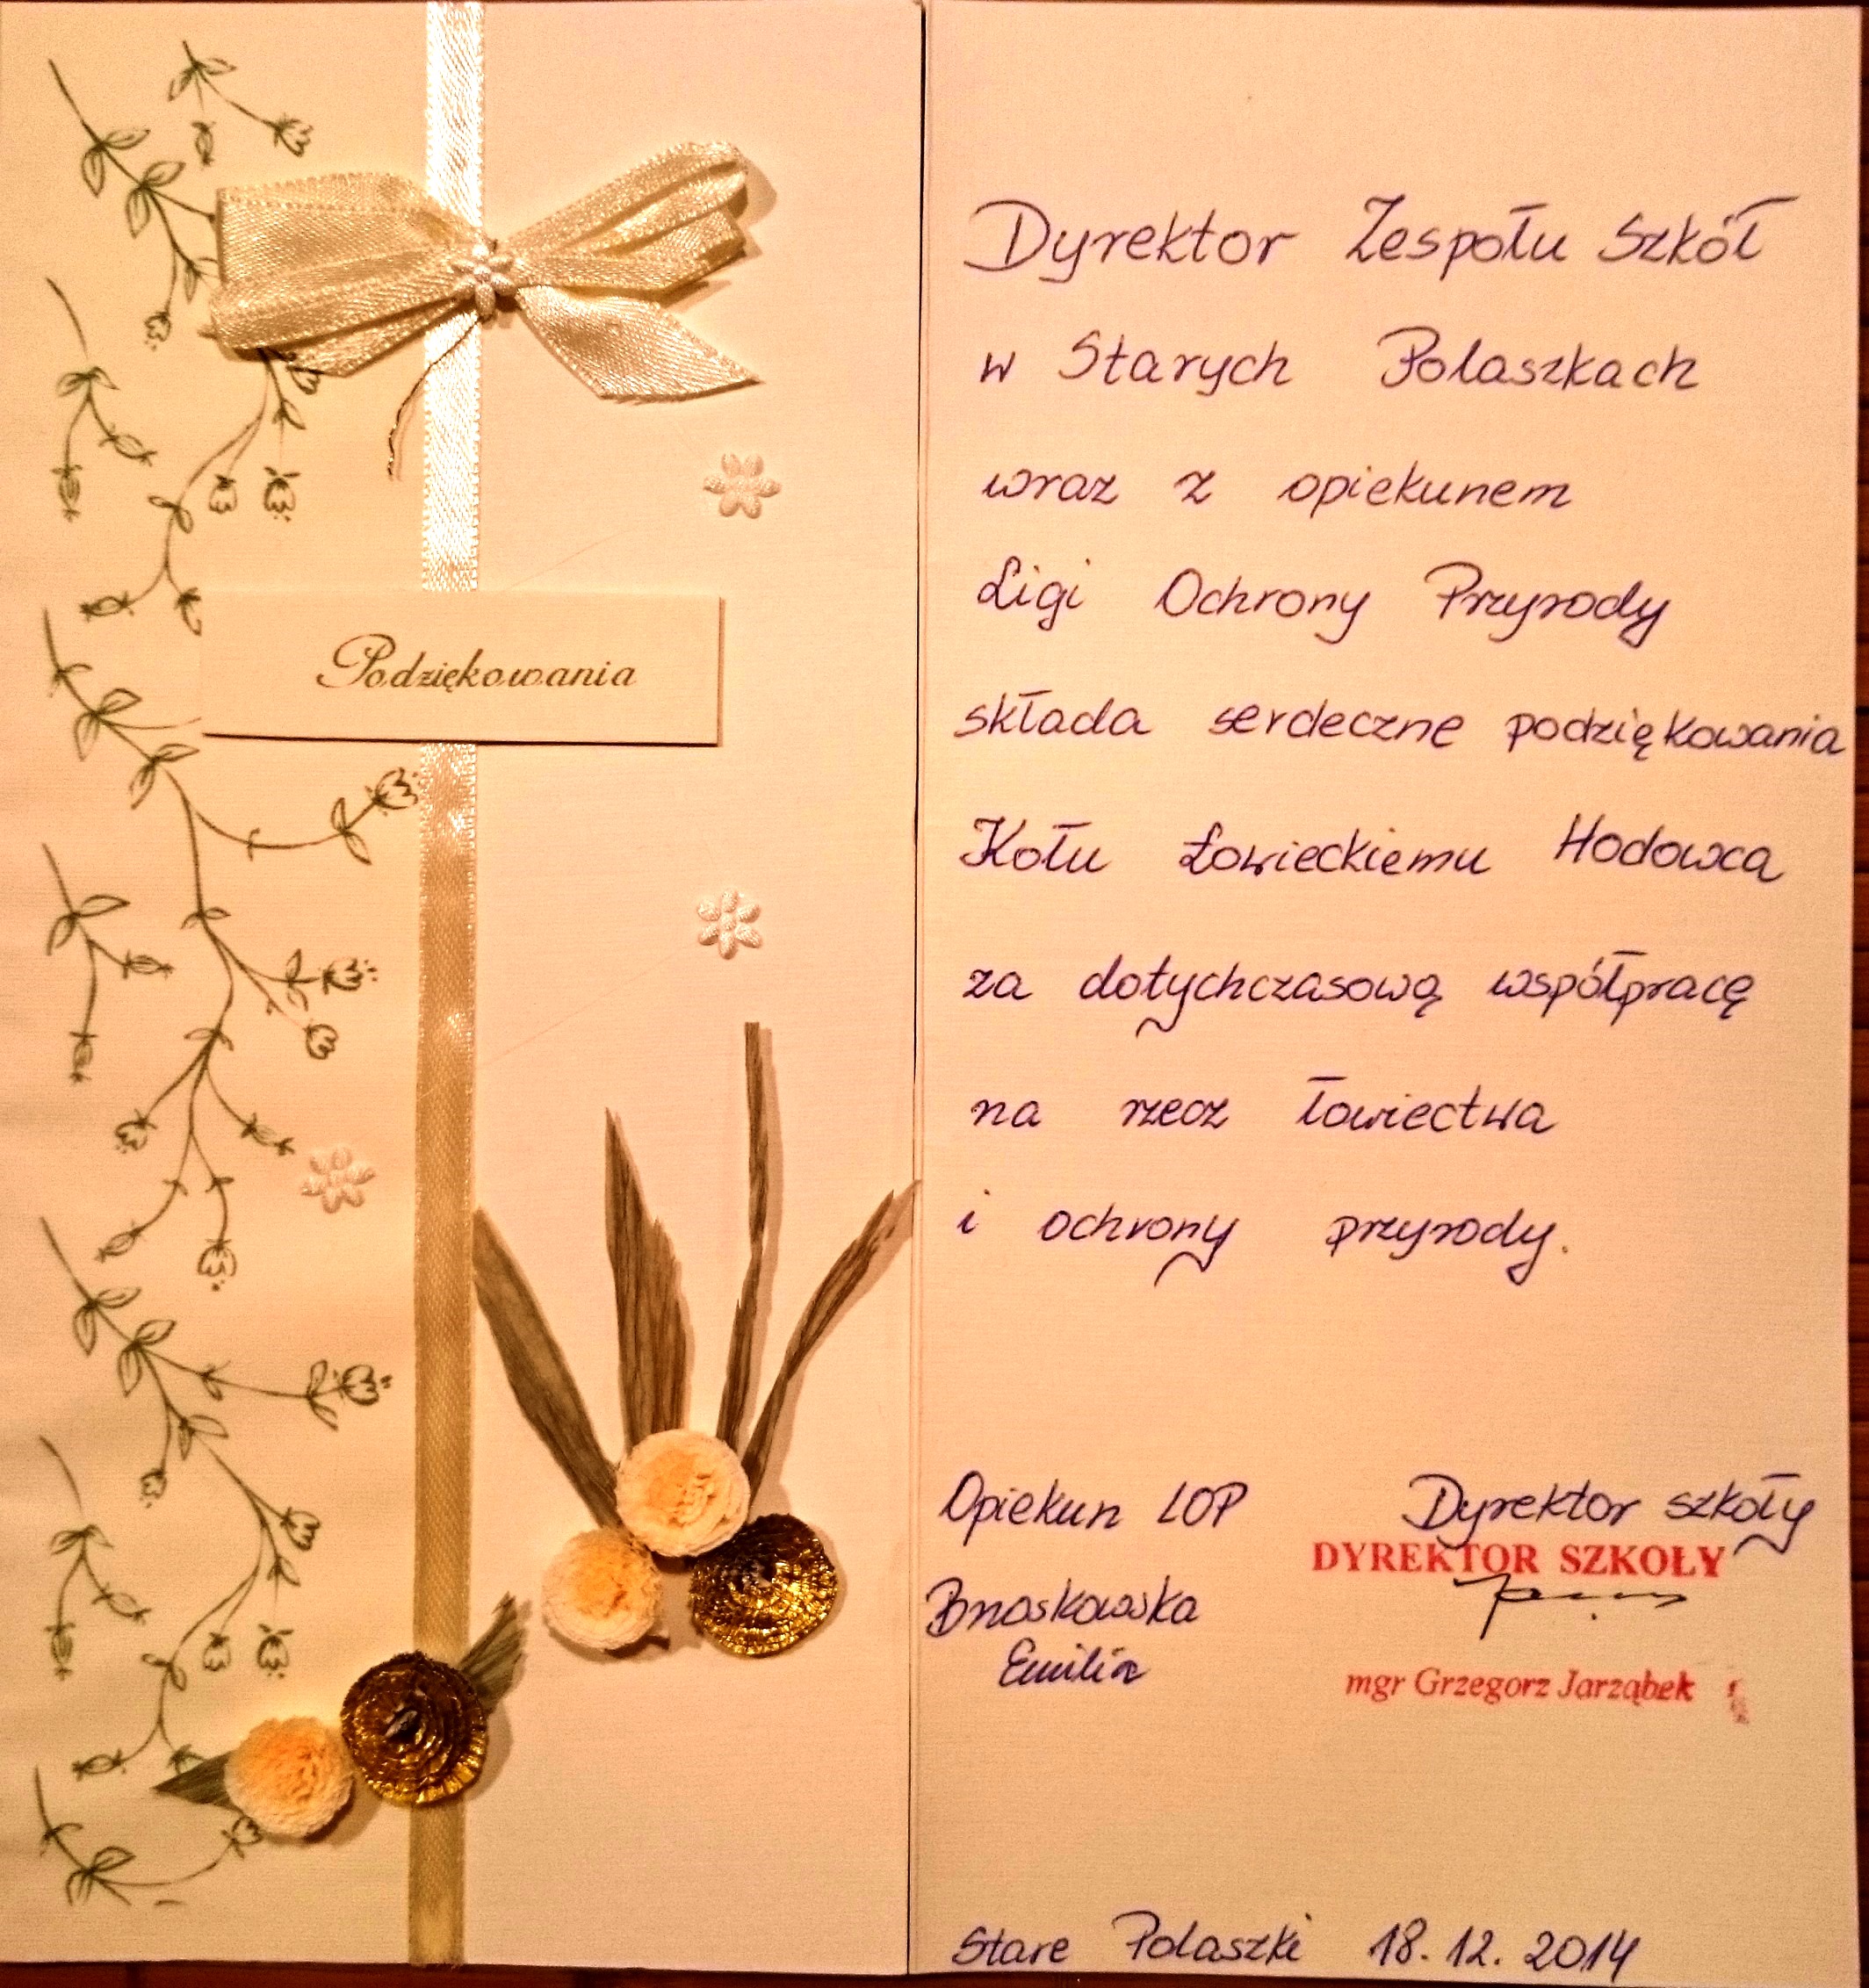 Podziękowania
Dyrektor Zespołu Szkół
w Starych Polaszkach
wraz z opiekunem
Ligi Ochrony Przyrody
składa serdeczne podziękowania
Kołu Łowieckiemu Hodowca
za dotychczasową współpracę
na rzecz łowiectwa
i ochrony przyrody.
Opiekun LOP
Emilia
Dyrektor szkoły
DYREKTOR SZKOŁY
mgr Grzegorz Jarząbek
Stare Polaszki 18.12.2014